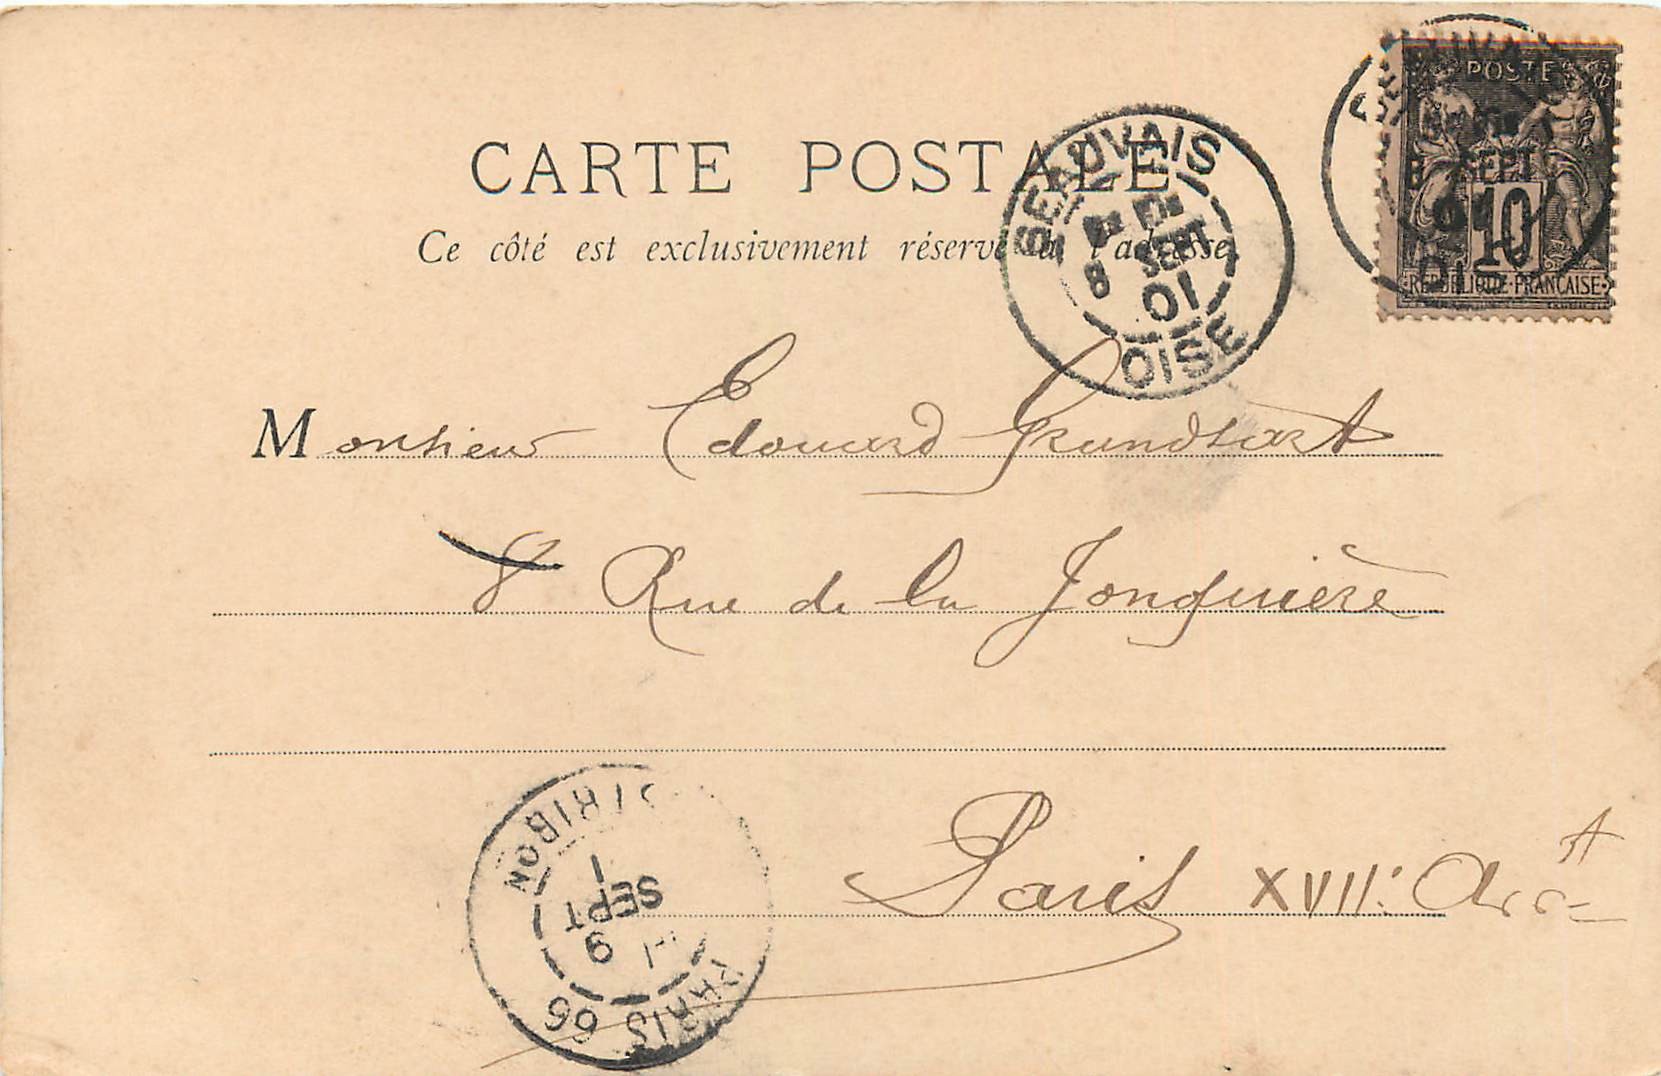 CARTE POSTALE
Ce côté est exclusivement réservé à l'adresse
BEAUVAIS
8 SEPT
01
OISE
POSTE
SEPT
10
REPUBLIQUE FRANCAISE
Monsieur Edouard
8 Rue de la Jonquière
Paris XVII: Arrt
PARIS 66
SEPT
9